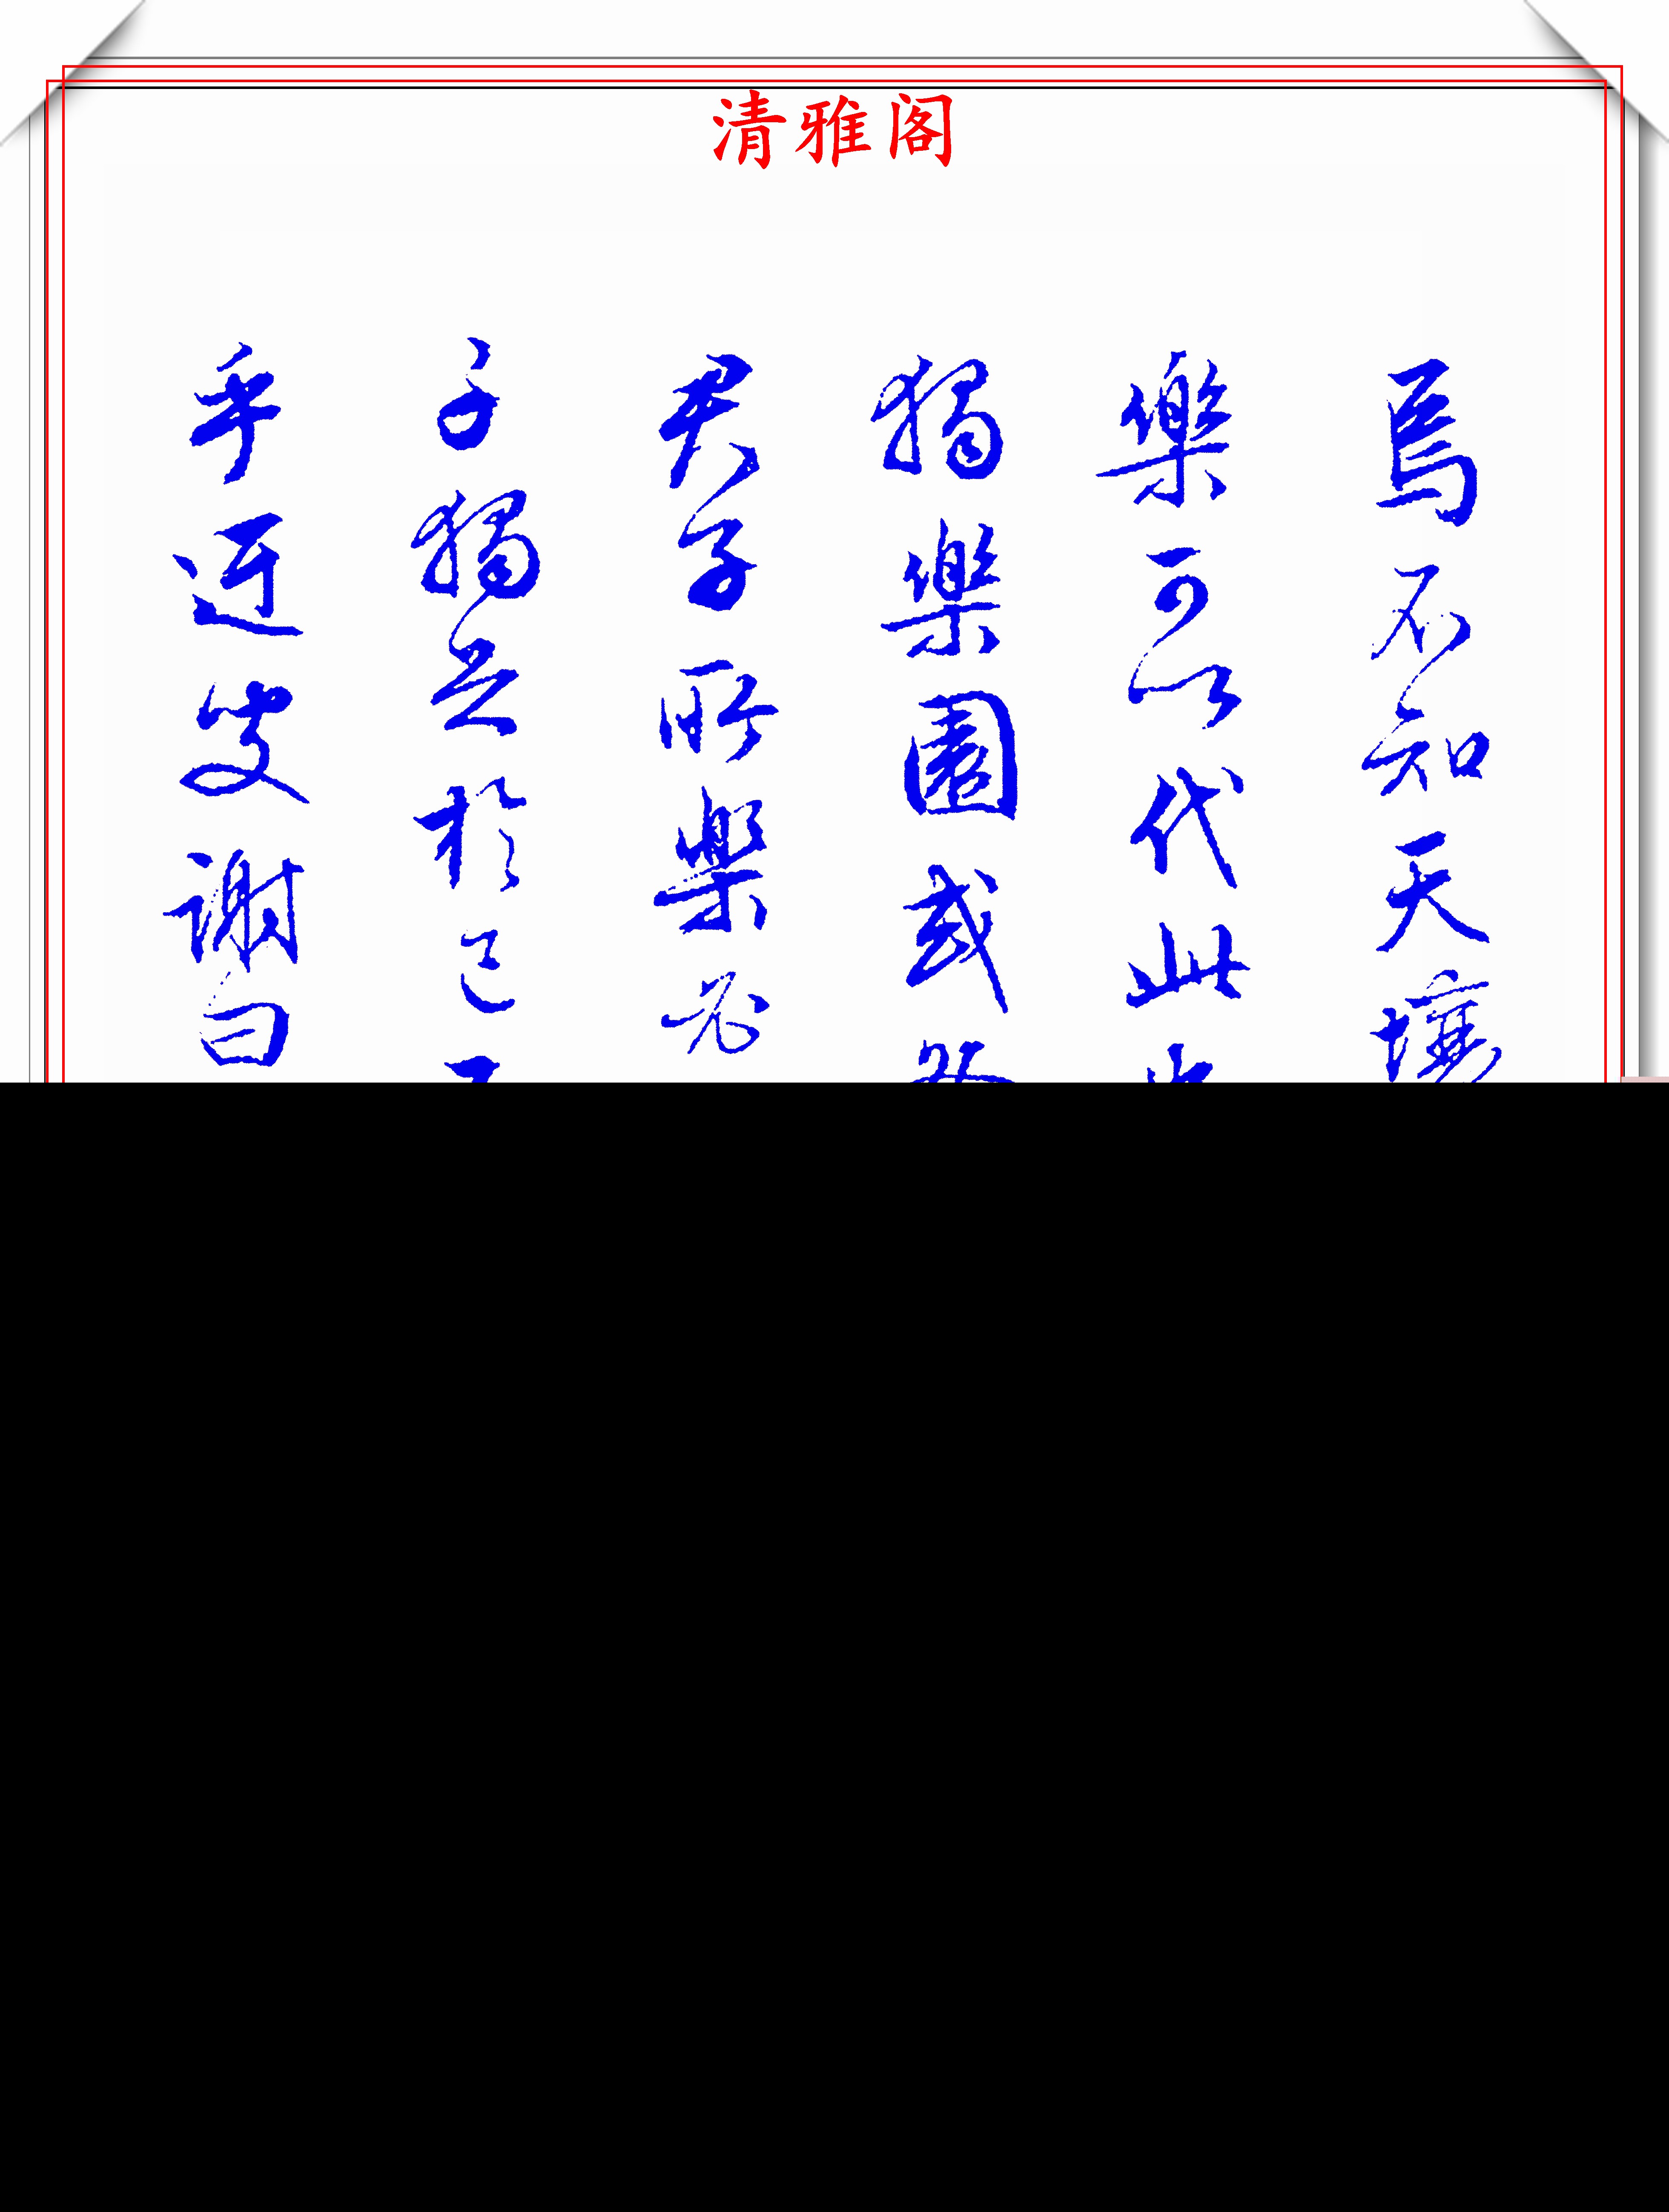 清雅阁
焉不知天壤
樂可以代此也
獨樂園或咎
君子所樂必
子獨樂於己不
乎迂叟謝曰